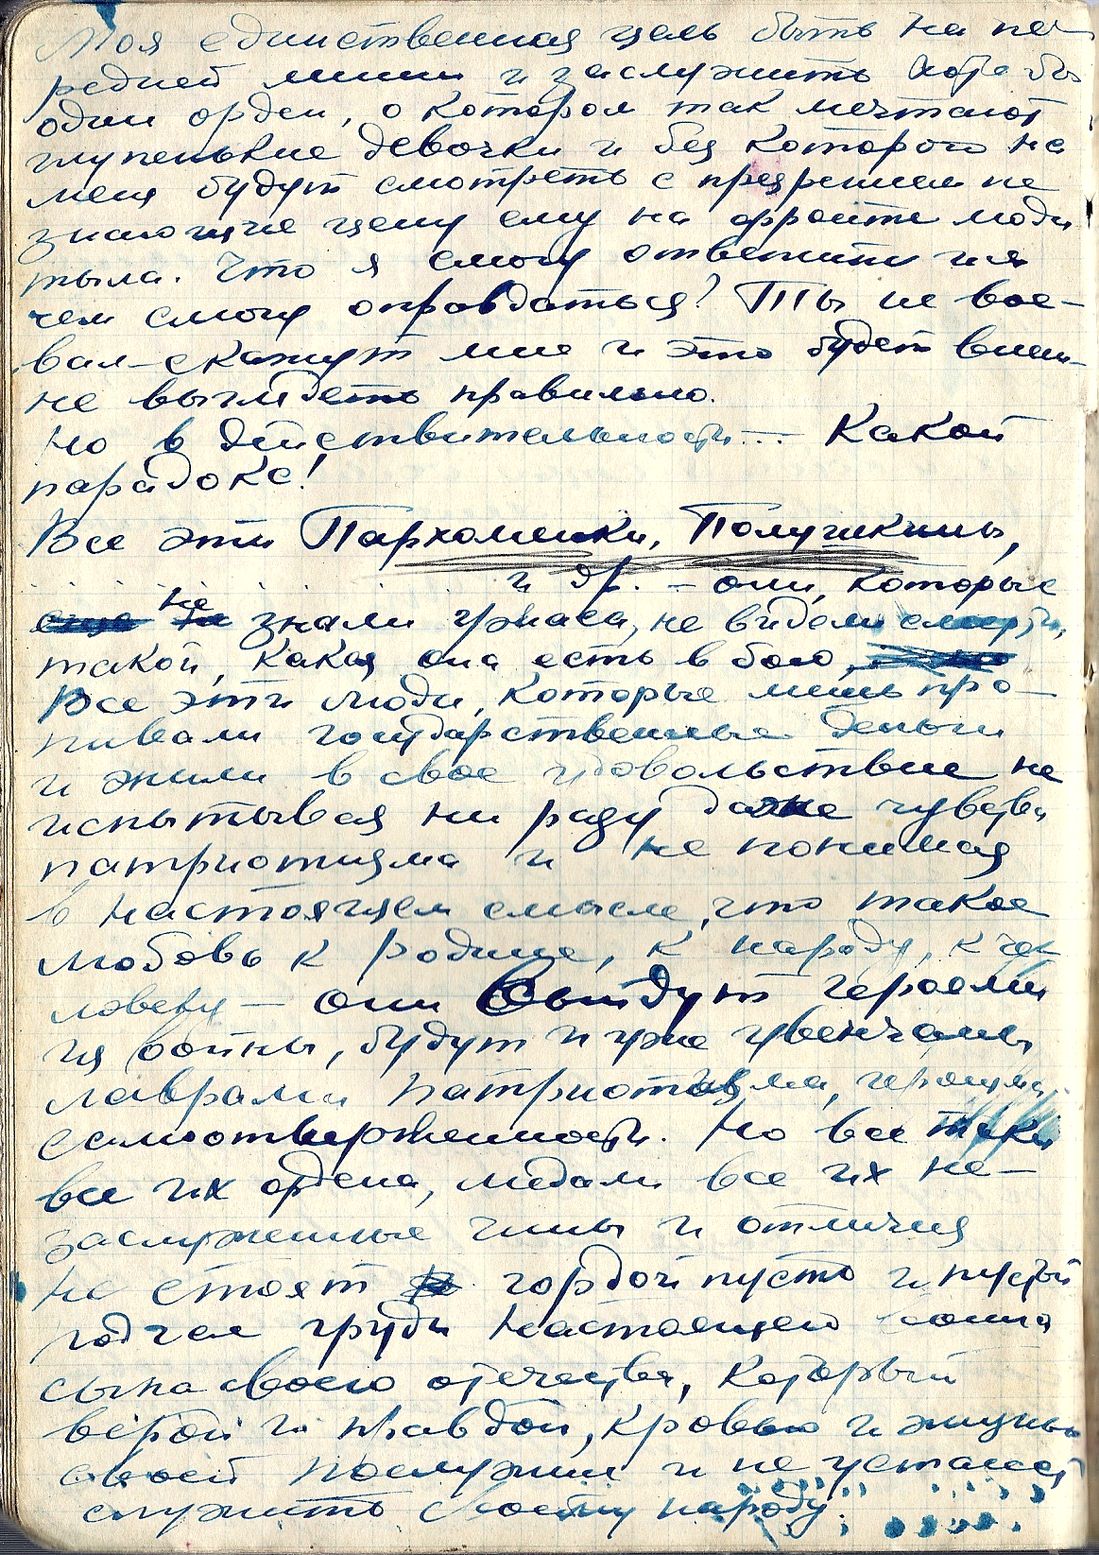 Моя единственная цель быть на пе-
редней линии и заслужить хотя бы
один орден, о котором так мечтают
глупенькие девочки и без которого на
меня будут смотреть с презрением не
знающие цену ему на фронте люди
тыла. Что я смогу ответить и я
чем смогу оправдаться? Ты не вое-
вал – скажут мне и это будет внеш-
не выглядеть правильно.
Но в действительности... Какой
парадокс!
Все эти Пархоменки, Полушкины,
и др. – они, которые
не знали ужаса, не видели смерти,
такой, какая она есть в бою,
Все эти люди, которые лишь про-
пивали государственные деньги
и жили в свое удовольствие не
испытывая ни разу даже чувства
патриотизма и не понимая
в настоящем смысле, что такое
любовь к родине, к народу, к че-
ловеку – они выйдут героями
из войны, будут и уже увенчаны
лаврами патриотизма, героизма,
самоотверженности. Но все таки
все их ордена, медали все их не-
заслуженные чины и отличия
не стоят гордой пусто и пустой
подчас груди настоящего воина
сына своего отечества, который
верой и правдой, кровью и жизнью
своей послужил и не устанет
служить своему народу.